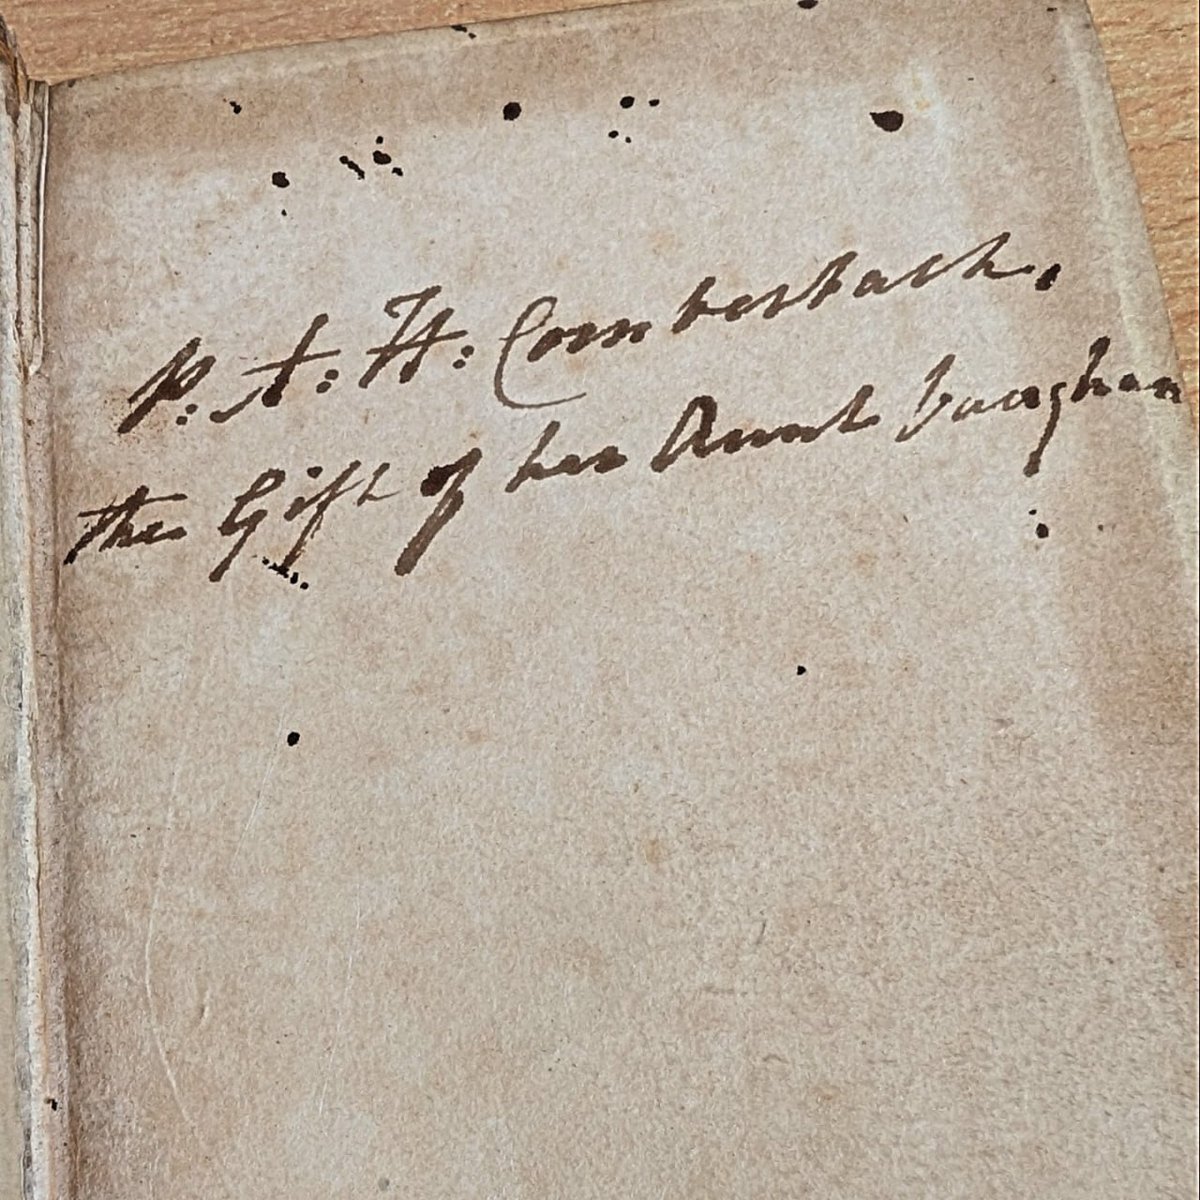 P: A: H: Comberbach.
the Gift of her Aunt Vaughan